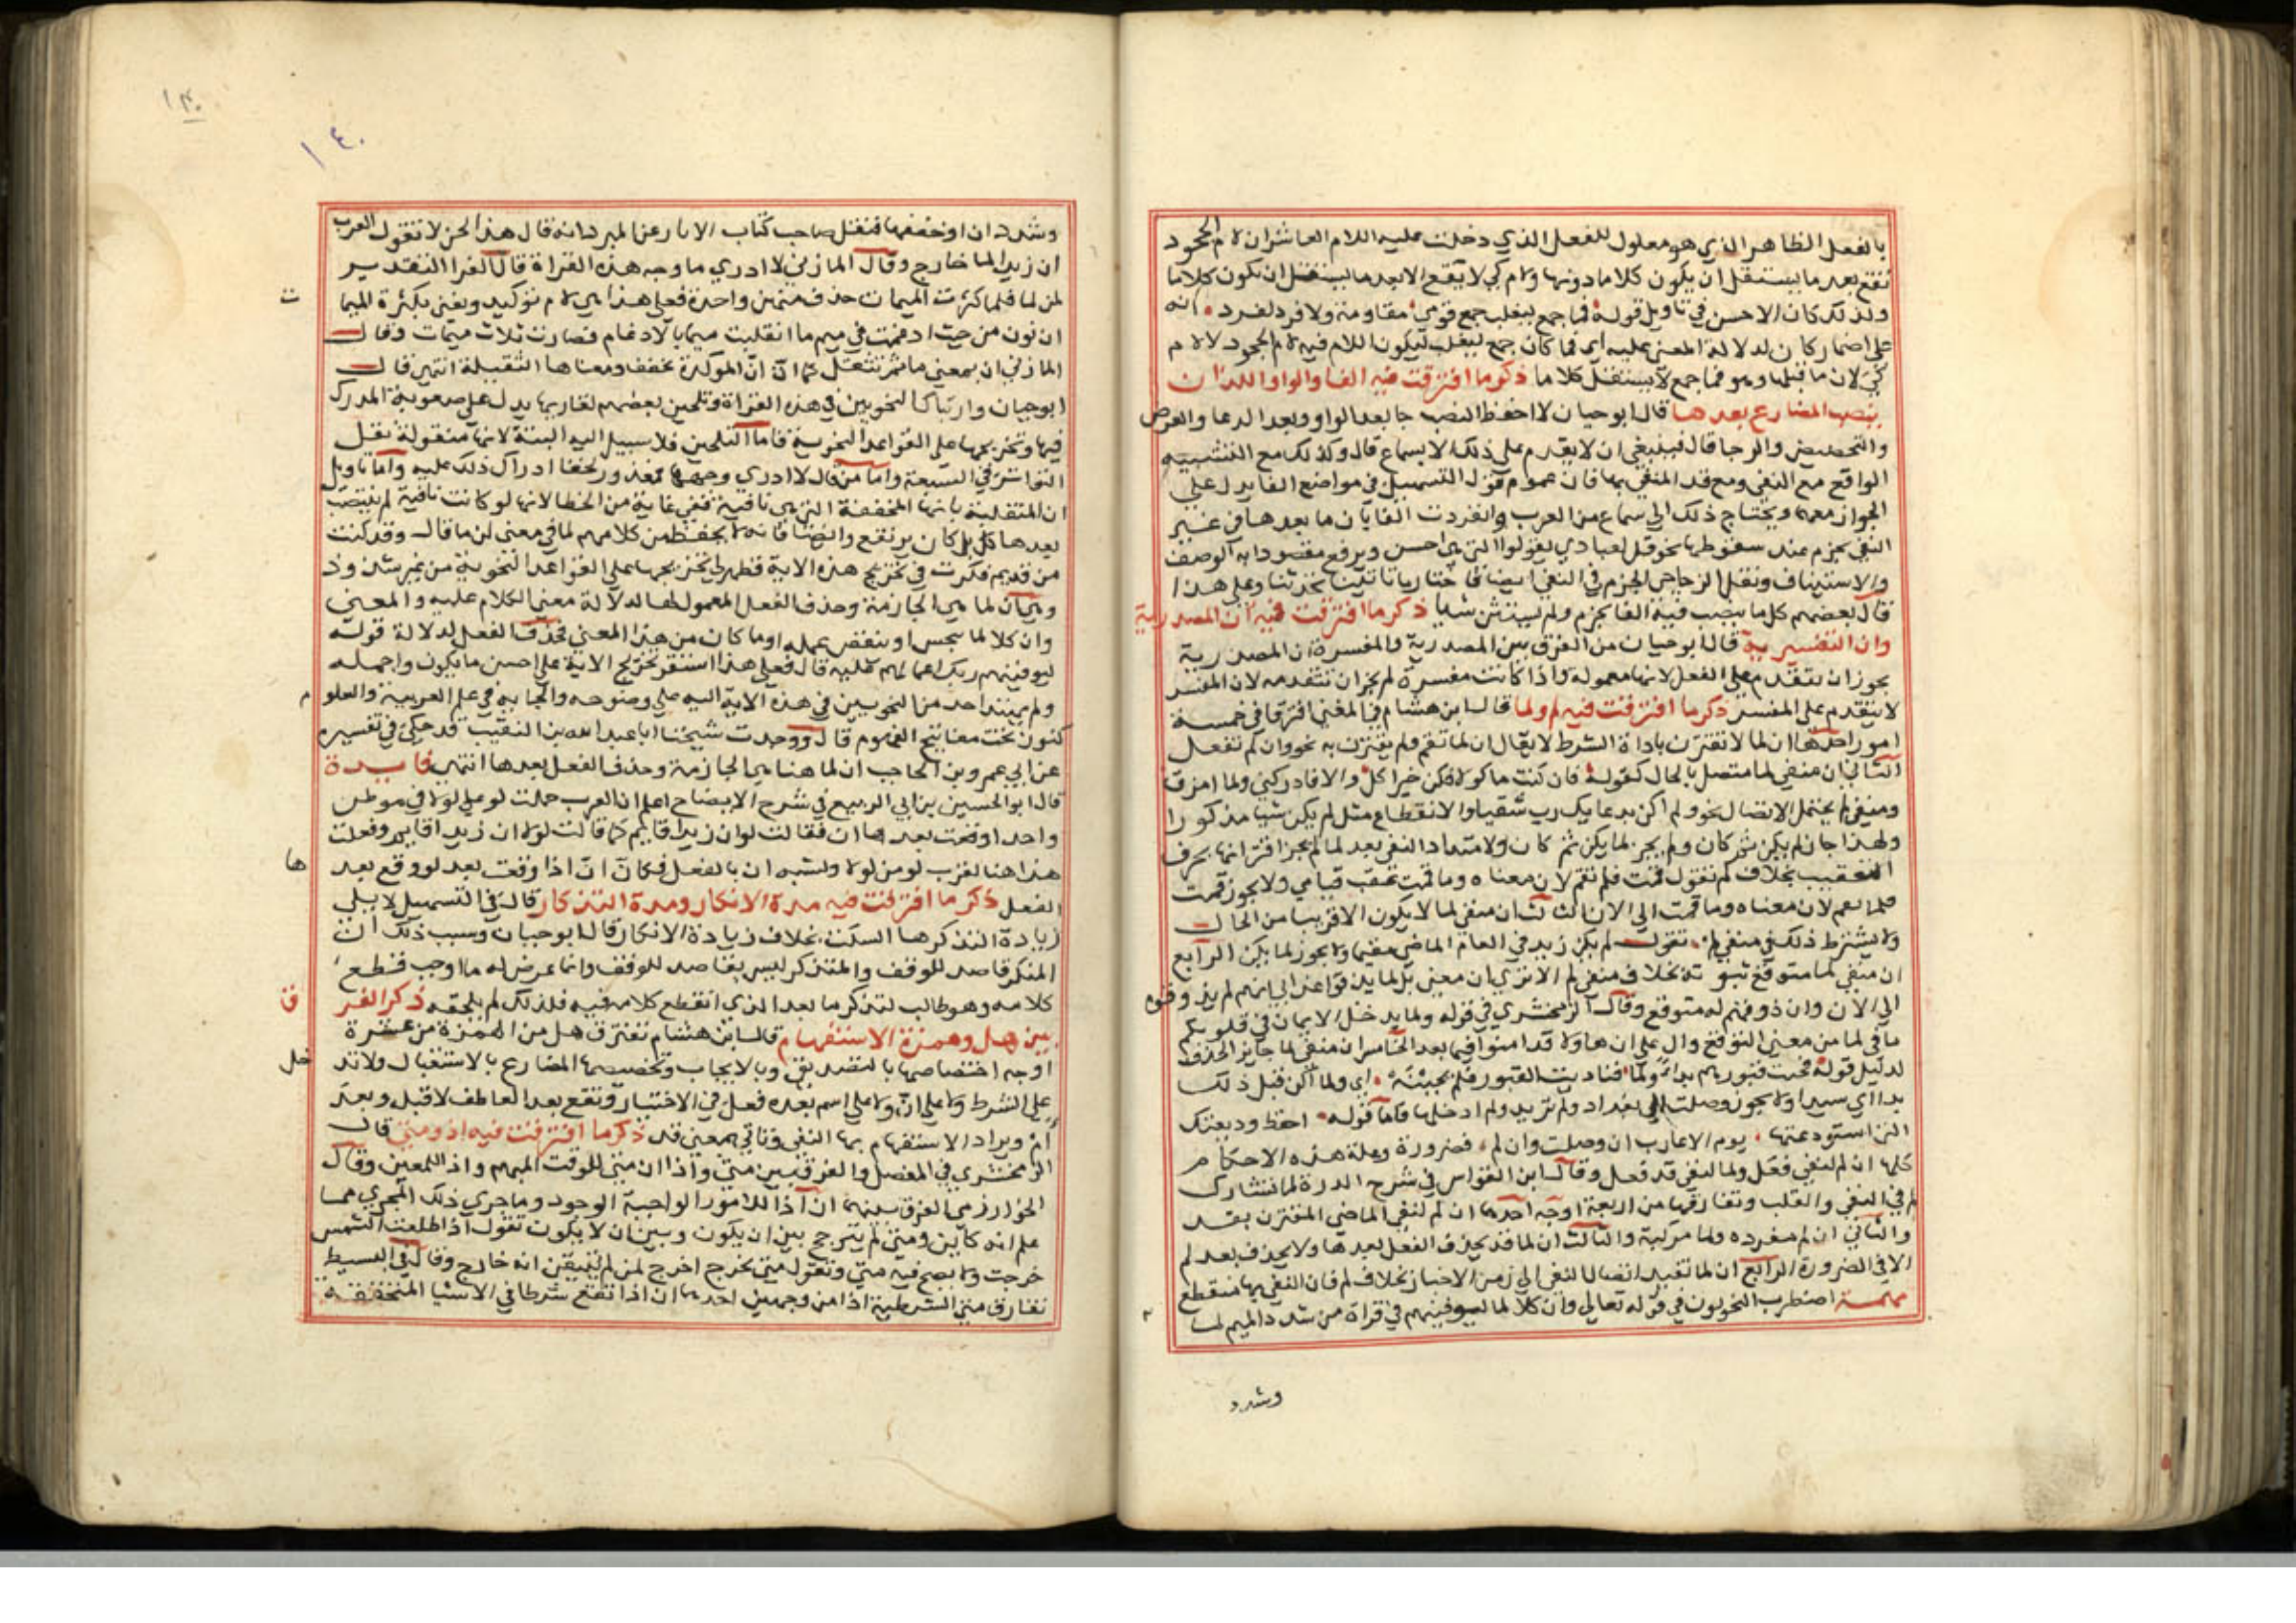 بالفعل الظاهر الذي هو معلول للفعل الذي دخلت عليه اللام العاشر ان لام الجحود
تقع بعد ما يستقل ان يكون كلاما دونها ولام كي لا يقع الا بعد ما يستقل ان يكون كلاما
ولذلك كان الاحسن في تاويل قوله فما جمع ليغلب جمع قومي مقاومة ولا فرد لفرد انه
على اضمار كان لدلالة المعنى عليه اي فما كان جمع ليغلب ليكون اللام فيه لام الجحود لا لام
كي لان ما قبلها وهو فما جمع لا يستقل كلاما ذكر ما افترقت فيه الفا والواو اللذان
ينصب المضارع بعدها قال ابو حيان لا احفظ النصب جا بعد الواو وبعد الدعا والعرض
والتحضيض والرجا قال فينبغي ان لا يقدم على ذلك الا بسماع قال وكذلك مع التشبيه
الواقع مع النفي ومع قد المنفي بها فان عموم قول التسهيل في مواضع الفا يدل على
الجواز معها ويحتاج ذلك الى سماع من العرب وانفردت الفا بان ما بعدها في غير
النفي يجزم عند سقوطها نحو قل لعبادي يقولوا التي هي احسن ويرفع مقصودا به الوصف
والاستيناف ونقل الزجاجي الجزم في النفي ايضا فاختار ما تاتينا تحدثنا وعلى هذا
قال بعضهم كل ما ينصب فيه الفا يجزم ولم يستثن شيا ذكر ما افترقت فيه ان المصدرية
وان التفسيرية قال ابو حيان من الفرق بين المصدرية والمفسرة ان المصدرية
يجوز ان تتقدم على الفعل لانها معمولة واذا كانت مفسرة لم يجز ان تتقدمه لان المفسر
لا يتقدم على المفسر ذكر ما افترقت فيه لم ولما قال ابن هشام في المغني افترقا في خمسة
امور احدها ان لما لا تقترن باداة الشرط لا يقال ان لما تقم ولم يقترن به نحو وان لم تفعل
الثاني ان منفي لما متصل بالحال كقوله فان كنت ماكولا فكن خير اكل والا فادركني ولما امزق
ومنفي لم يحتمل الاتصال نحو ولم اكن بدعايك رب شقيا والانقطاع مثل لم يكن شيا مذكورا
ولهذا جاز لم يكن ثم كان ولم يجز لما يكن ثم كان ولامتداد النفي بعد لما لم يجز اقترانها بحرف
التعقيب بخلاف لم تقول قمت فلم تقم لان معناه وما قمت عقب قيامي ولا يجوز قمت
فلما تقم لان معناه وما قمت الى الان الثالث ان منفي لما لا يكون الا قريبا من الحال
ولا يشترط ذلك في منفي لم تقول لم يكن زيد في العام الماضي مقيما ولا يجوز لما يكن الرابع
ان منفي لما متوقع ثبوته بخلاف منفي لم الا ترى ان معنى بل لما يذوقوا عذاب انهم لم يذوقوه
الى الان وان ذوقهم له متوقع وقال الزمخشري في قوله ولما يدخل الايمان في قلوبكم
ما في لما من معنى التوقع دال على ان هاولا قد امنوا فيما بعد الخامس ان منفي لما جايز الحذف
لدليل قوله فجيت قبورهم بدا ولما فناديت القبور فلم يجبنه اي ولما اكن قبل ذلك
بدا اي سيدا ولا يجوز وصلت الى بغداد ولم تريد ولم ادخلها فاما قوله احفظ وديعتك
التي استودعتها يوم الاعارب ان وصلت وان لم فضرورة وعلة هذه الاحكام
كلها ان لم لنفي فعل ولما لنفي قد فعل وقال ابن القواس في شرح الدرة لما تشارك
لم في النفي والقلب وتفارقها من اربعة اوجه احدها ان لم لنفي الماضي المقترن بقد
والثاني ان لم مفرده ولما مركبة والثالث ان لما قد يحذف الفعل بعدها ولا يحذف بعد لم
الا في الضرورة الرابع ان لما تفيد اتصال النفي الى زمن الاخبار بخلاف لم فان النفي بها منقطع
مهمة اضطرب النحويون في قوله تعالى وان كلا لما ليوفينهم في قراة من شدد الميم لما
وشدد
١٤٠
وشدد ان او خففها فنقل صاحب كتاب عن المبرد انه قال هذا لحن لا تقول العرب
ان زيدا لما خارج وقال المازني لا ادري ما وجه هذه القراة قال الفرا التقدير
لمن لما فلما كثرت الميمات حذف منهن واحدة فعلى هذا هي لام توكيد ويعني بكثرة الميما ت
ان نون من حيث ادغمت في ميم ما انقلبت ميما بالادغام فصارت ثلاث ميمات وقال
المازني ان بمعنى ما ثم تثقل كما ان ان الموكدة تخفف ومعناها الثقيلة انتهى قال
ابو حيان وارتباك النحويين في هذه القراة وتلحين بعضهم لقاريها يدل على صعوبة المدرك
فيها وتخريجها على القواعد النحوية فاما التلحين فلا سبيل اليه البتة لانها منقولة نقل
التواتر في السبعة واما من قال لا ادري وجهها فمعذور لخفا ادراك ذلك عليه واما تاويل
ان المثقلة بانها المخففة التي هي نافية ففي غاية من الخطا لانها لو كانت نافية لم ينتصب
بعدها كل بل كان يرتفع وايضا فانه لا يحفظ من كلامهم لما في معنى لن ما قال وقد كنت
من قديم فكرت في تخريج هذه الاية فظهر لي تخريجها على القواعد النحوية من غير شذوذ
وهي ان لما هي الجازمة وحذف الفعل المعمول لها لدلالة معنى الكلام عليه والمعنى
وان كلا لما يبخس او ينقص عمله او ما كان من هذا المعنى فحذف الفعل لدلالة قوله
ليوفينهم ربك اعمالهم عليه قال فعلى هذا استقر تخريج الاية على احسن ما يكون واجمله
ولم يهتد احد من النحويين في هذه الاية اليه على وضوحه واتجاهه في علم العربية والعلو م
كنوز تحت مفاتيح الفهوم قال ووجدت شيخنا ابا عبد الله بن النقيب قد حكى في تفسيره
عن ابي عمرو بن الحاجب ان لما هنا هي الجازمة وحذف الفعل بعدها انتهى فايدة
قال ابو الحسين بن ابي الربيع في شرح الايضاح اعلم ان العرب حملت لو على لولا في موطن
واحد اوقعت بعدها ان فقالت لو ان زيدا قايم كما قالت لولا ان زيدا قايم وفعلت
هذا هنا لقرب لو من لولا ولشبه ان بالفعل فكان ان اذا وقعت بعد لو وقع بعد ها
الفعل ذكر ما افترقت فيه مدة الانكار ومدة التذكار قال في التسهيل لا يلي
زيادة التذكر ها السكت بخلاف زيادة الانكار قال ابو حيان وسبب ذلك ان
المنكر قاصد للوقف والمتذكر ليس بقاصد للوقف وانما عرض له ما اوجب قطع
كلامه وهو طالب لتذكر ما بعد الذي انقطع كلامه فيه فلذلك لم يلحقه ذكر الفر ق
بين هل وهمزة الاستفهام قال ابن هشام تفترق هل من الهمزة من عشرة
اوجه اختصاصها بالتصديق وبالايجاب وتخصيصها المضارع بالاستقبال ولا تد خل
على الشرط ولا على ان ولا على اسم بعده فعل في الاختيار وتقع بعد العاطف لا قبله وبعد
ام ويراد الاستفهام بها النفي وتاتي بمعنى قد ذكر ما افترقت فيه اذ ومتى قال
الزمخشري في المفصل والفرق بين متى واذا ان متى للوقت المبهم واذا للمعين وقال
الخوارزمي الفرق بينهما ان اذا للامور الواجبة الوجود وما جرى ذلك المجرى مما
علم انه كاين ومتى لم يترجح بين ان يكون وبين ان لا يكون تقول اذا طلعت الشمس
خرجت ولا يصح فيه متى وتقول متى تخرج اخرج لمن لم يتيقن انه خارج وقال في البسيط
تفارق متى الشرطية اذا من وجهين احدهما ان اذا تقع شرطا في الاشيا المتحققة